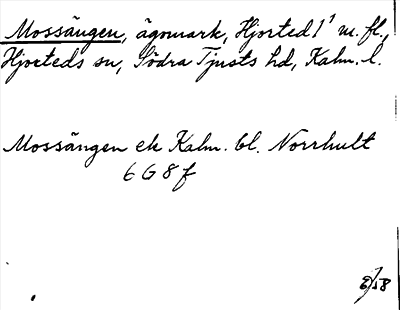 Mossängen, ägomark, Hjorted 1¹ m. fl.,
Hjorteds sn, Södra Tjusts hd, Kalm. l.
Mossängen ek Kalm. bl. Norrhult
6 G 8 f